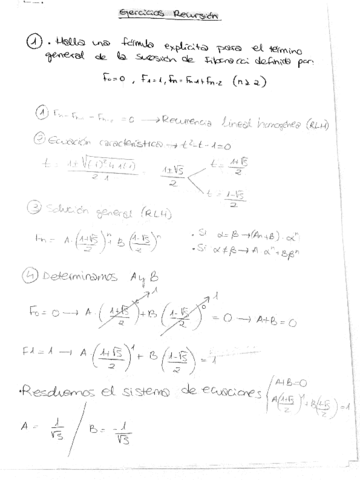 Ejercicios Recursión
① . Halla una fórmula explícita para el término
general de la sucesión de Fibonacci definida por:
F₀=0 , F₁=1, Fₙ=Fₙ₋₁+Fₙ₋₂ (n≥2)
① Fₙ-Fₙ₋₁-Fₙ₋₂=0 → Recurrencia lineal homogénea (RLH)
② Ecuación característica → t²-t-1=0
t = = (1±√5)/2
t = (1+√5)/2
t = (1-√5)/2
③ Solución general (RLH)
fn = A·((1+√5)/2)ⁿ + B((1-√5)/2)ⁿ
• Si α=β → (An+B)·αⁿ
• Si α≠β → A αⁿ+Bβⁿ
④ Determinamos A y B
F₀=0 → A·((1+√5)/2)⁰ 1 + B((1-√5)/2)⁰ 1 = 0 → A+B=0
F1=1 → A((1+√5)/2)¹ + B((1-√5)/2)¹ = 1
• Resolvemos el sistema de ecuaciones { A+B=0
A((1+√5)/2)¹+B((1-√5)/2)¹=1
A = 1/√5 / B = -1/√5